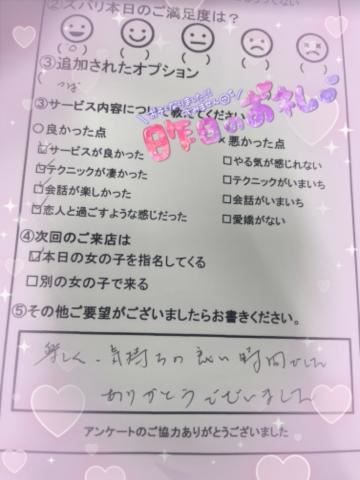 ②ズバリ本日のご満足度は？
(○) ( ) ( ) ( ) ( )
③追加されたオプション
つば
③サービス内容について教えてください
昨日のお礼
○良かった点
×悪かった点
☑サービスが良かった
□やる気が感じれない
☑テクニックが凄かった
□テクニックがいまいち
☑会話が楽しかった
□会話がいまいち
☑恋人と過ごすような感じだった
□愛嬌がない
④次回のご来店は
☑本日の女の子を指名してくる
□別の女の子で来る
⑤その他ご要望がございましたらお書きください。
楽しく、気持ちの良い時間でした
ありがとうございました
アンケートのご協力ありがとうございました